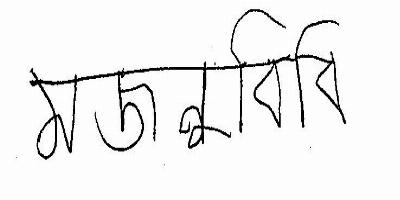 মজনু বিবি